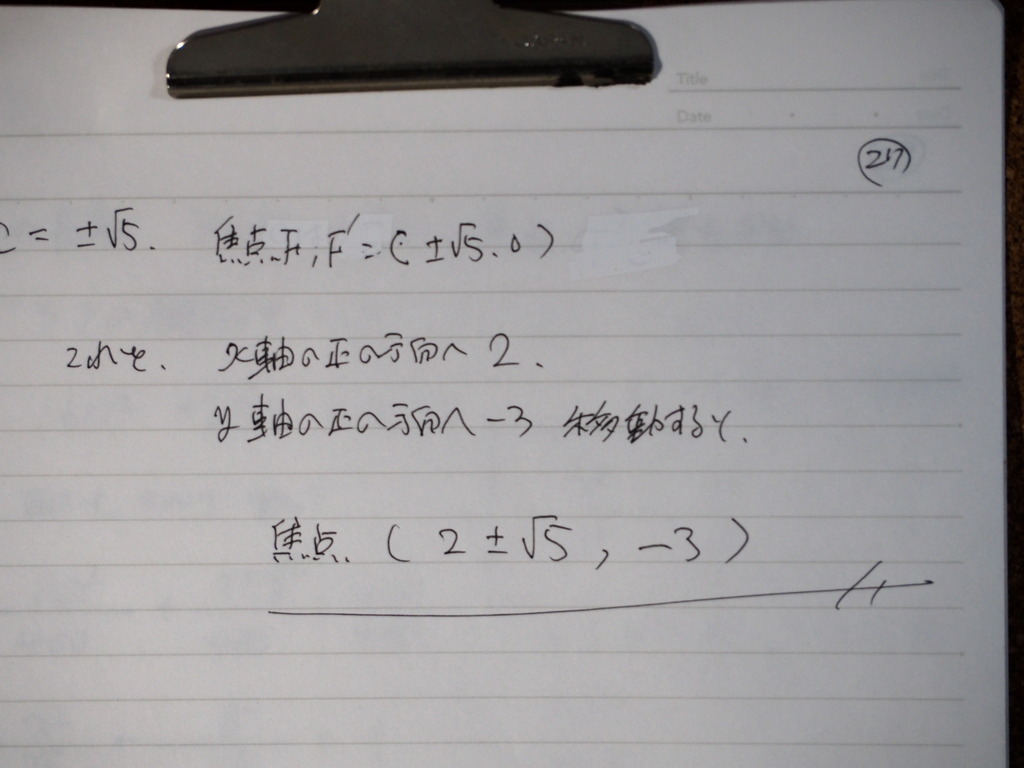 Title
Date
217
C = ±√5. 焦点F, F' = (±√5, 0)
これを、 x軸の正の方向へ 2、
y軸の正の方向へ -3 移動すると、
焦点 (2±√5, -3)